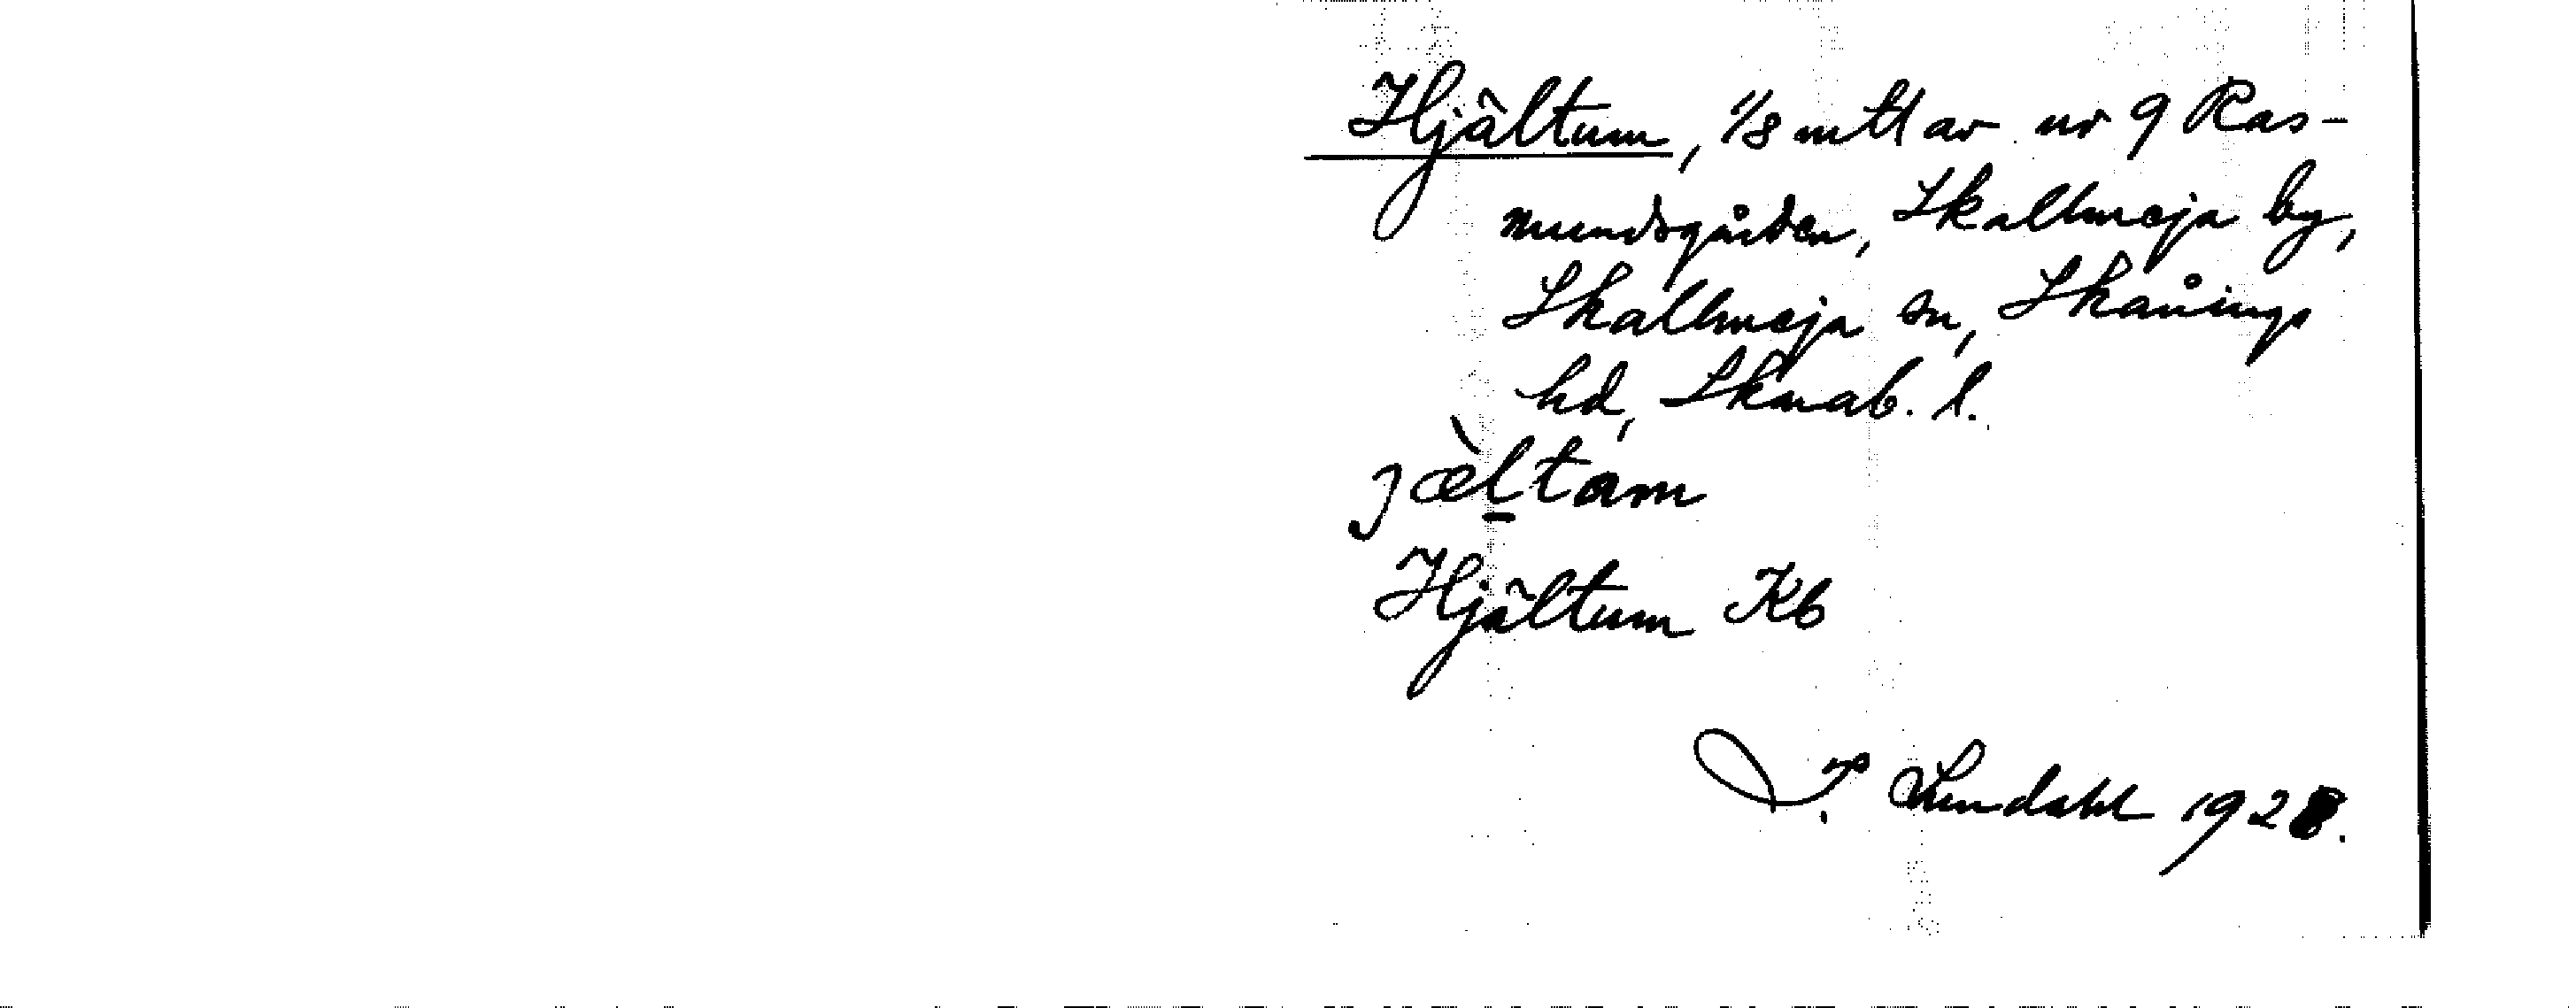 Hjältum, 1/8 mtl av nr 9 Ras-
mundsgården, Skallmeja by,
Skallmeja sn, Skånings
hd, Skarab. l.
jæ̀ltam
Hjältum Kb
I. Lundahl 1928.